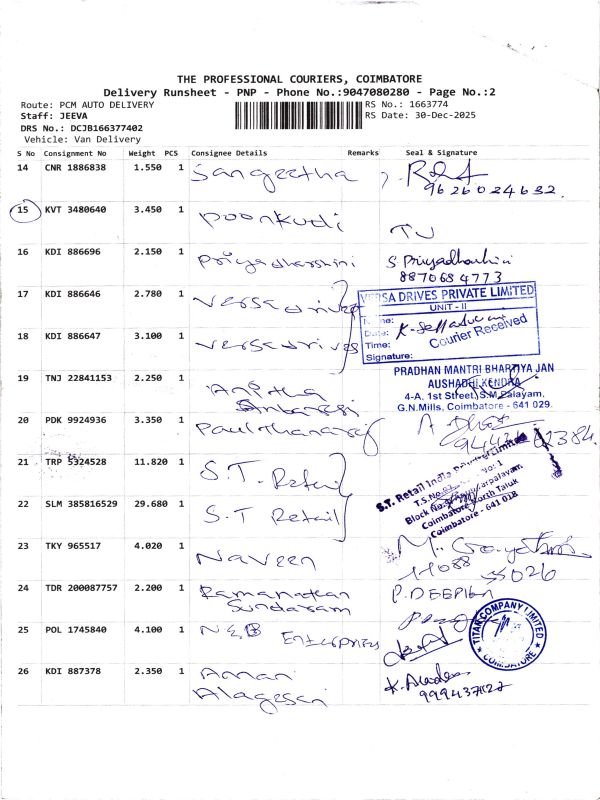 THE PROFESSIONAL COURIERS, COIMBATORE
Delivery Runsheet - PNP - Phone No.:9047080280 - Page No.:2
Route: PCM AUTO DELIVERY RS No.: 1663774
Staff: JEEVA RS Date: 30-Dec-2025
DRS No.: DCJB166377402
Vehicle: Van Delivery
S No Consignment No Weight PCS Consignee Details Remarks Seal & Signature
14 CNR 1886838 1.550 1 Sangeetha
9626024632.
15 KVT 3480640 3.450 1 Poonkudi
16 KDI 886696 2.150 1 Priyadharshini S. Priyadharshini
8870684773
17 KDI 886646 2.780 1 Versa drives
VERSA DRIVES PRIVATE LIMITED
UNIT - II
Name:
Date:
Time: Courier Received
Signature:
18 KDI 886647 3.100 1 Versa drives
19 TNJ 22841153 2.250 1 Anitha
PRADHAN MANTRI BHARTIYA JAN
AUSHADHI KENDRA
4-A, 1st Street, S.M.Palayam,
G.N.Mills, Coimbatore - 641 029.
20 PDK 9924936 3.350 1
21 TRP 5324528 11.820 1 S.T. Retail
S.T. Retail India Private Limited
Coimbatore North Taluk
Coimbatore - 641 018
22 SLM 385816529 29.680 1 S.T Retail
23 TKY 965517 4.020 1 Naveen
55026
24 TDR 200087757 2.200 1 Ramanathan
Sundaram
25 POL 1745840 4.100 1 NEB Enterprises
TITAN COMPANY LIMITED
COIMBATORE
26 KDI 887378 2.350 1